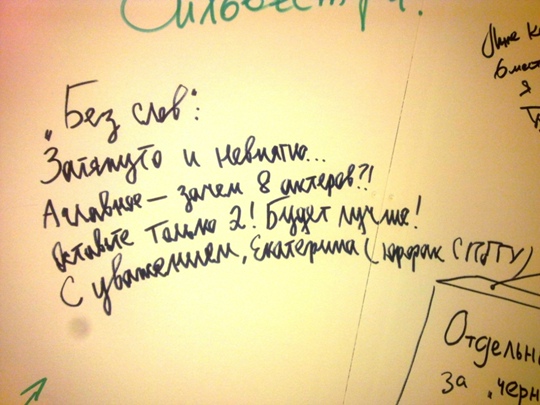 Сильвестра!
„Без слов“:
Затянуто и невнятно...
А главное — зачем 8 актеров?!
Оставьте только 2! Будет лучше!
С уважением, Екатерина (юрфак СПбГУ)
Мне
я
Отдельн
за „черн